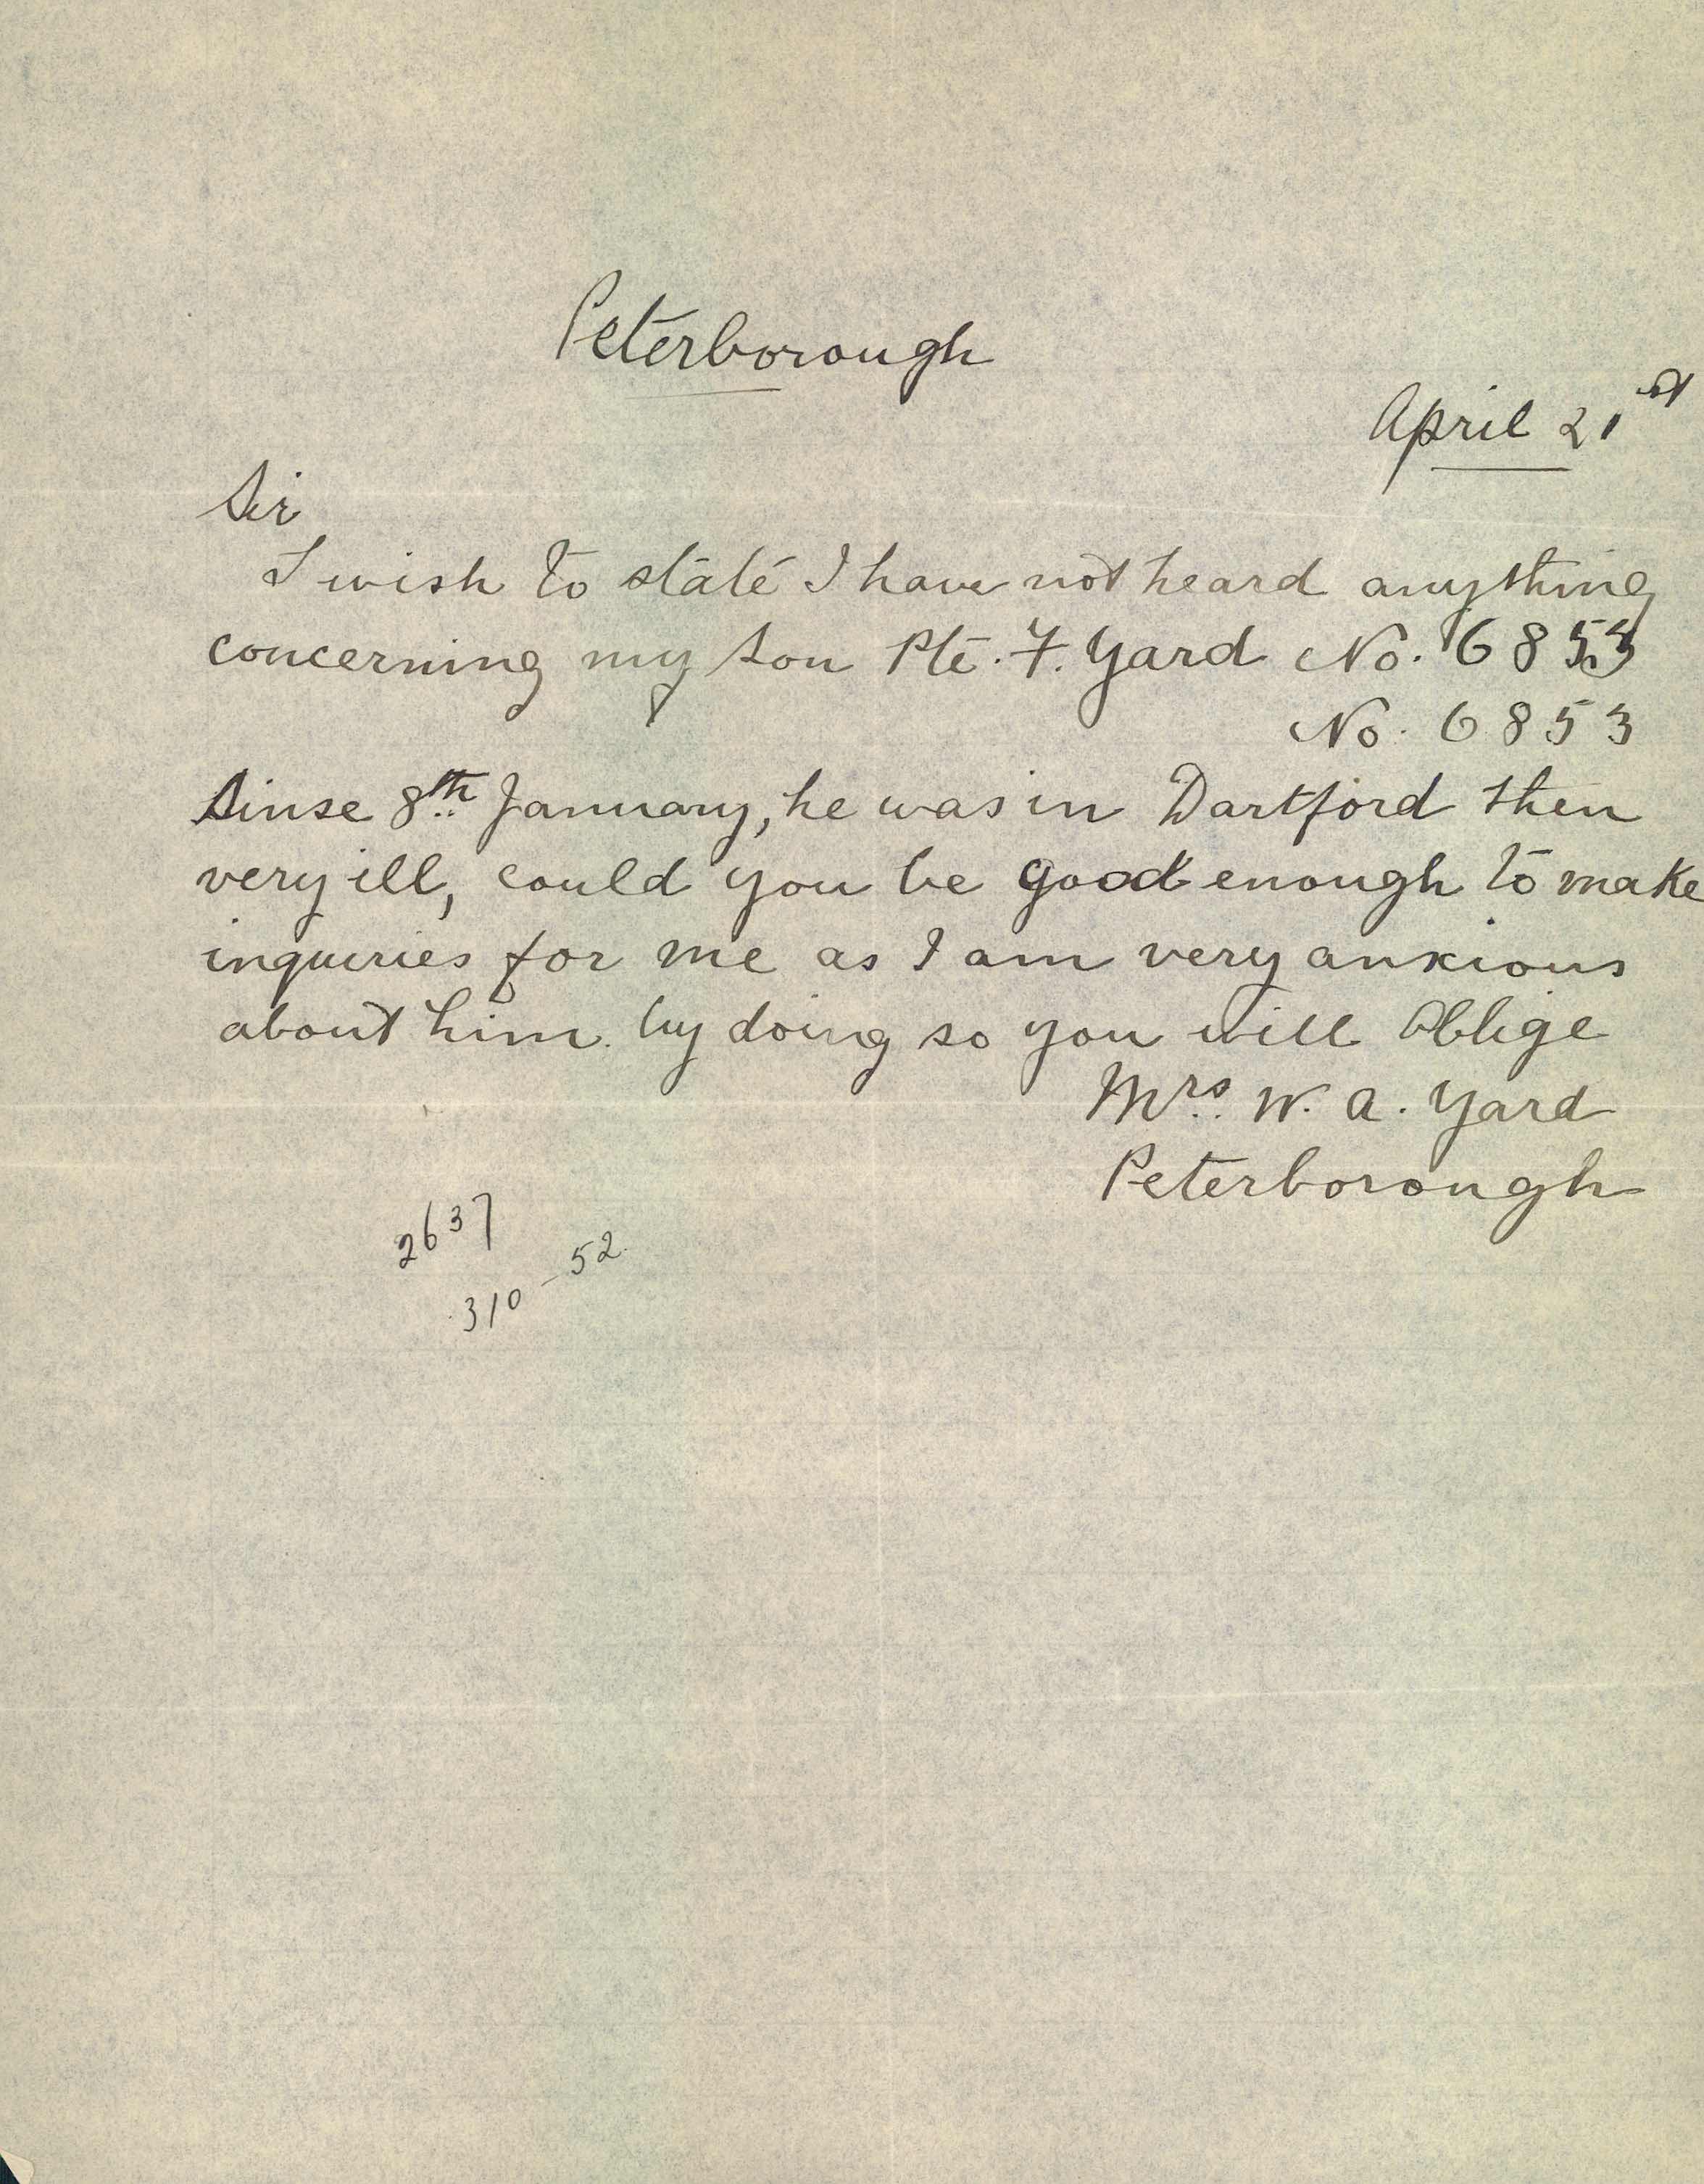 Peterborough
April 21st
Sir
I wish to state I have not heard anything
concerning my son Pte. F. Yard No. 6853
No. 6853
Sinse 8th January, he was in Dartford then
very ill, could you be good enough to make
inquiries for me as I am very anxious
about him. by doing so you will Oblige
Mrs. W. A. Yard
Peterborough
2637
310-52.